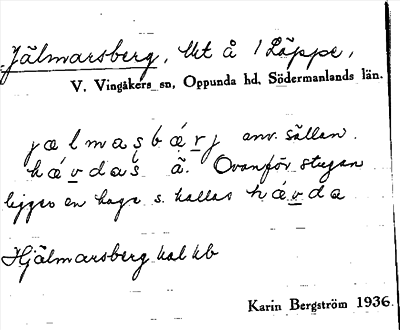 Jälmarsberg, Ut å 1 Läppe,
V. Vingåkers sn, Oppunda hd, Södermanlands län.
jælmaşbǽrj anv. sällan.
hǽvdaş ä. Ovanför stugan
ligger en hage s. kallas hǽvda
Hjälmarsberg kal kb
Karin Bergström 1936.